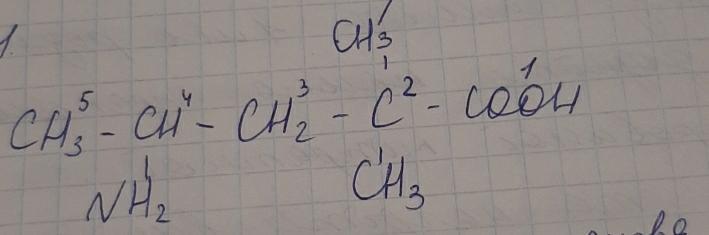 1.
CH3
CH3⁵ - CH⁴ - CH2³ - C² - COOH¹
NH2 CH3